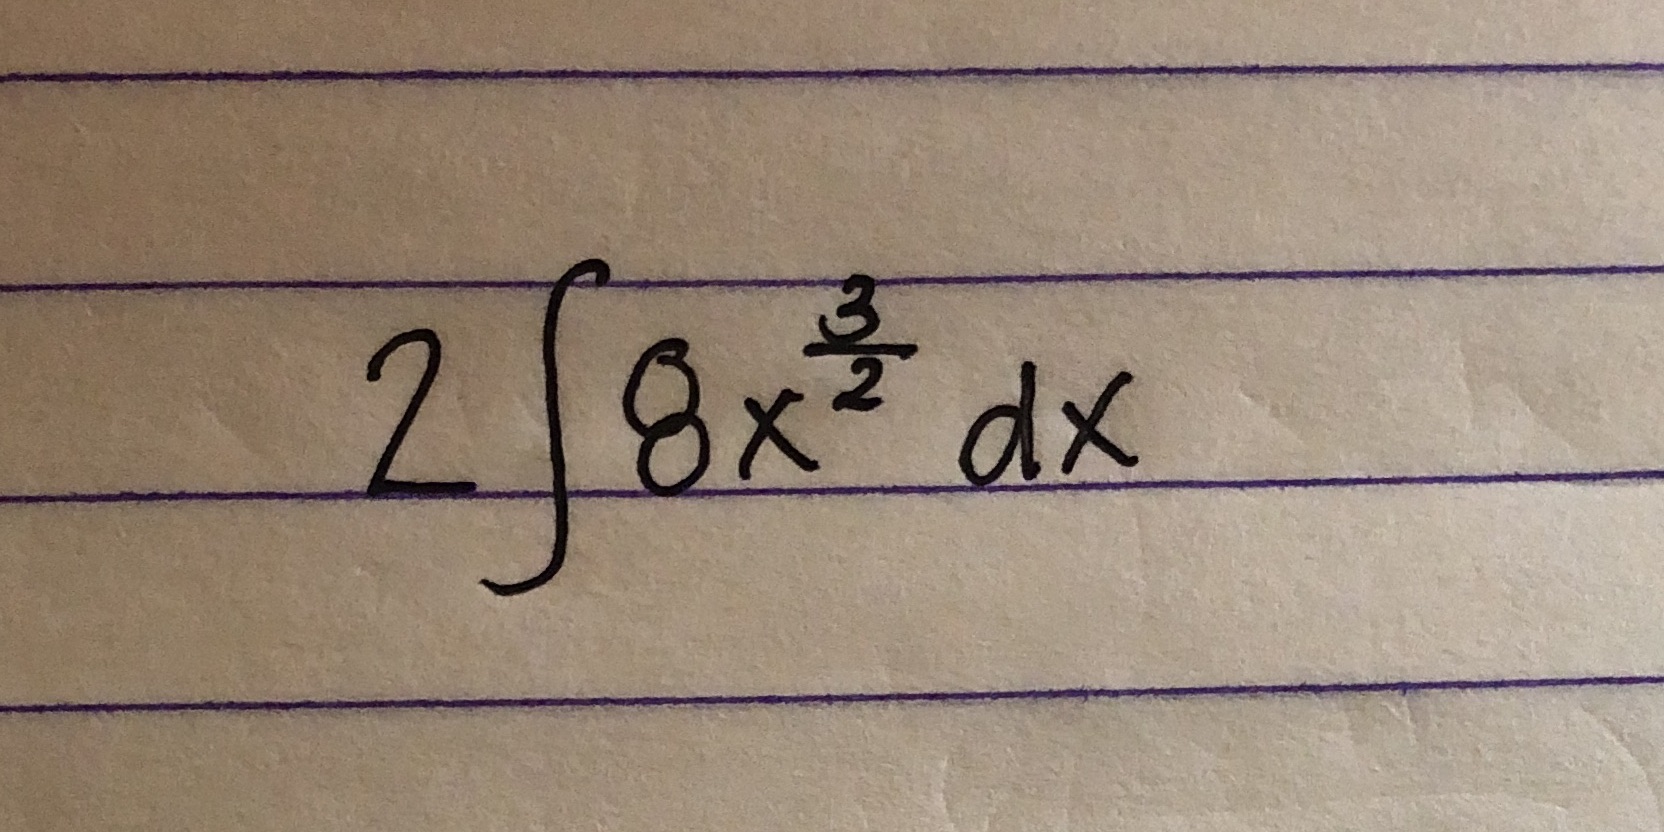 2∫8x^{\frac{3}{2}} dx